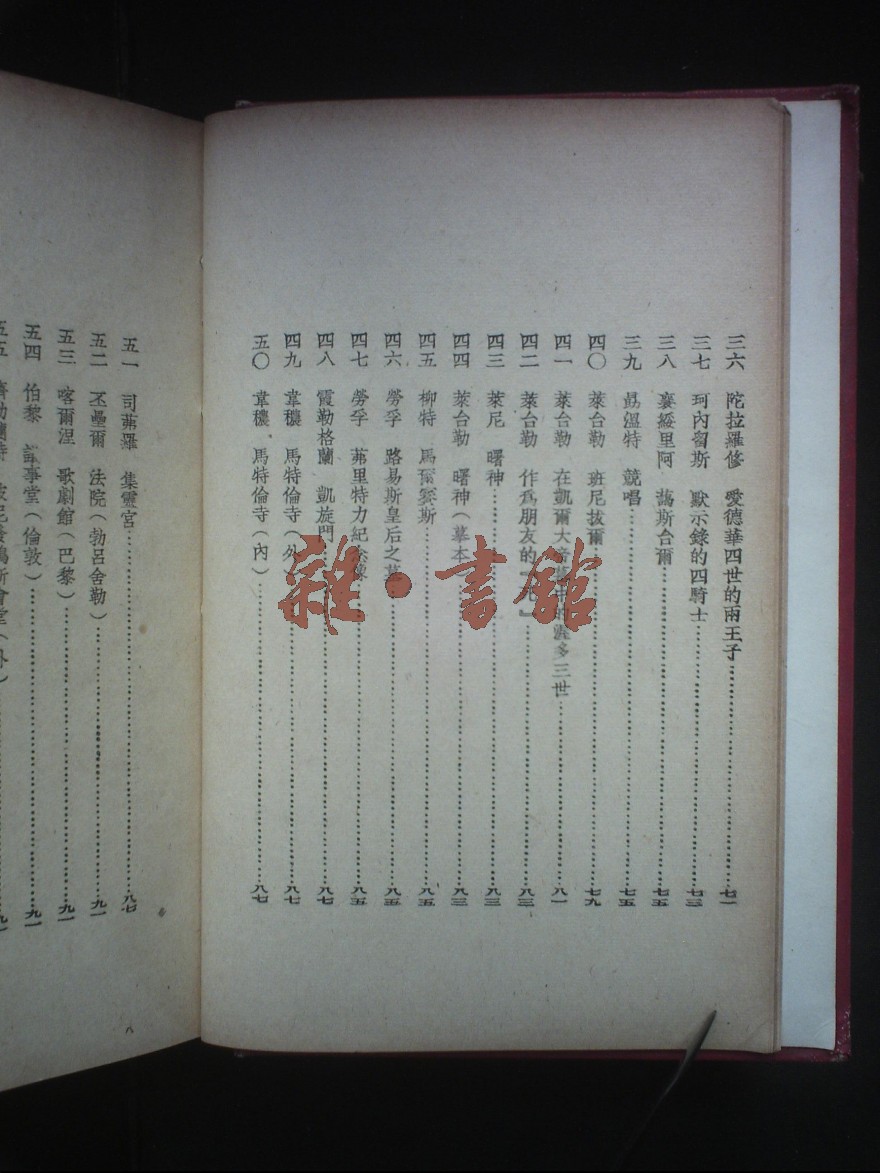 三六 陀拉羅修 愛德華四世的兩王子……七一
三七 珂內留斯 默示錄的四騎士……七三
三八 襄綏里阿 藹斯台爾……七五
三九 勗溫特 競唱……七五
四〇 萊台勒 班尼拔爾……七九
四一 萊台勒 在凱爾大帝 的 多三世……八一
四二 萊台勒 作爲朋友的『死』……八三
四三 萊尼 曙神……八三
四四 萊台勒 曙神(摹本)……八三
四五 柳特 馬爾賽斯……八五
四六 勞孚 路易斯皇后之墓……八五
四七 勞孚 茀里特力紀念像……八五
四八 霞勒格蘭 凱旋門……八七
四九 韋穠 馬特倫寺(外)……八七
五〇 韋穠 馬特倫寺(內)……八七
五一 司茀羅 集靈宮……八七
五二 丕壘爾 法院(勃呂舍勒)……九一
五三 喀爾涅 歌劇館(巴黎)……九一
五四 伯黎 議事堂(倫敦)……九一
雜·書館